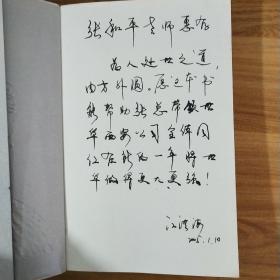 张和平老师惠存
为人处世之道,
内方外圆。愿这本书
能帮助张总带领世
华西安公司全体同
仁在新的一年将世
华做得更大更强!
2015.1.10